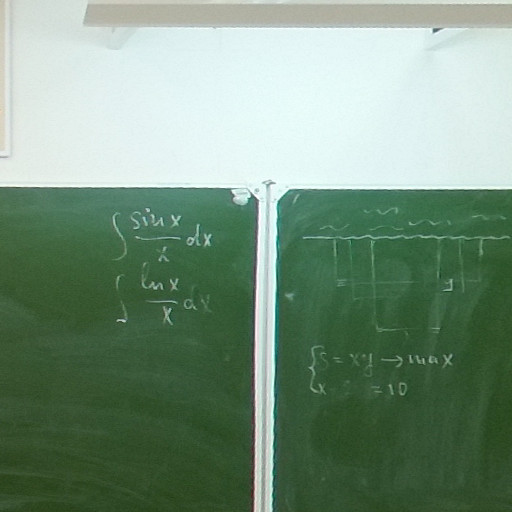 ∫ sin x / x dx
∫ ln x / x dx
{ S = xy → max
x = 10